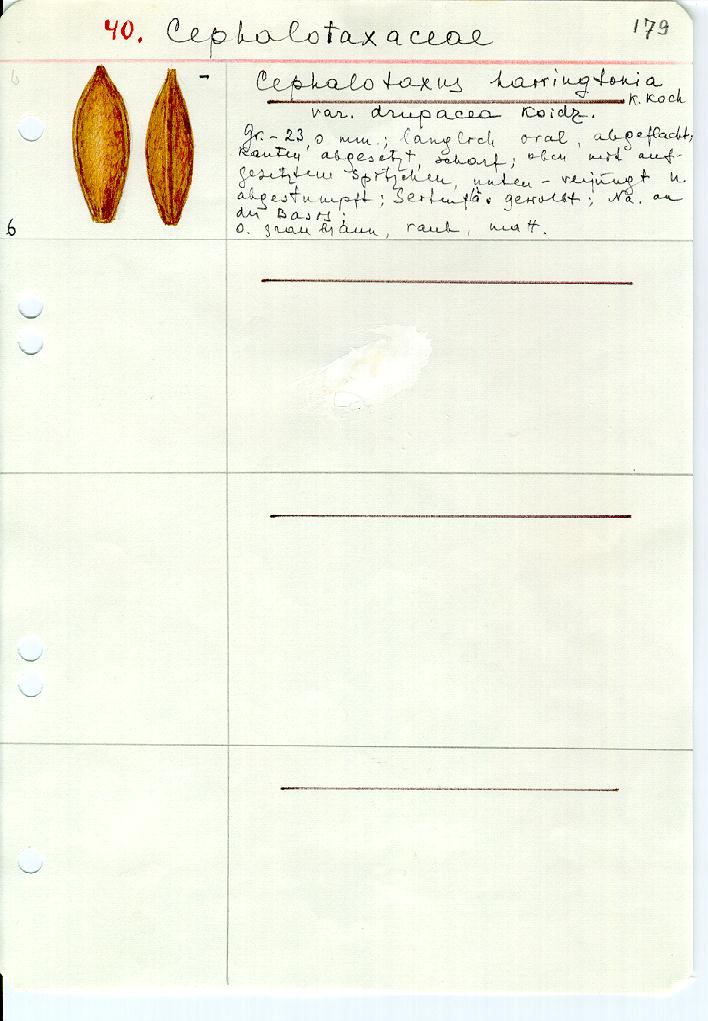 40. Cephalotaxaceae 179
6 Cephalotaxus harringtonia
K. Koch
var. drupacea Koidz.
Gr. - 23,0 mm.; länglich oval, abgeflacht;
Kanten abgesetzt, scharf; oben mit auf-
gesetztem Spitzchen, unten - verjüngt u.
abgestumpft; Seitenflä. gewölbt; Na. an
der Basis.
6 O. graubraun, rauh, matt.